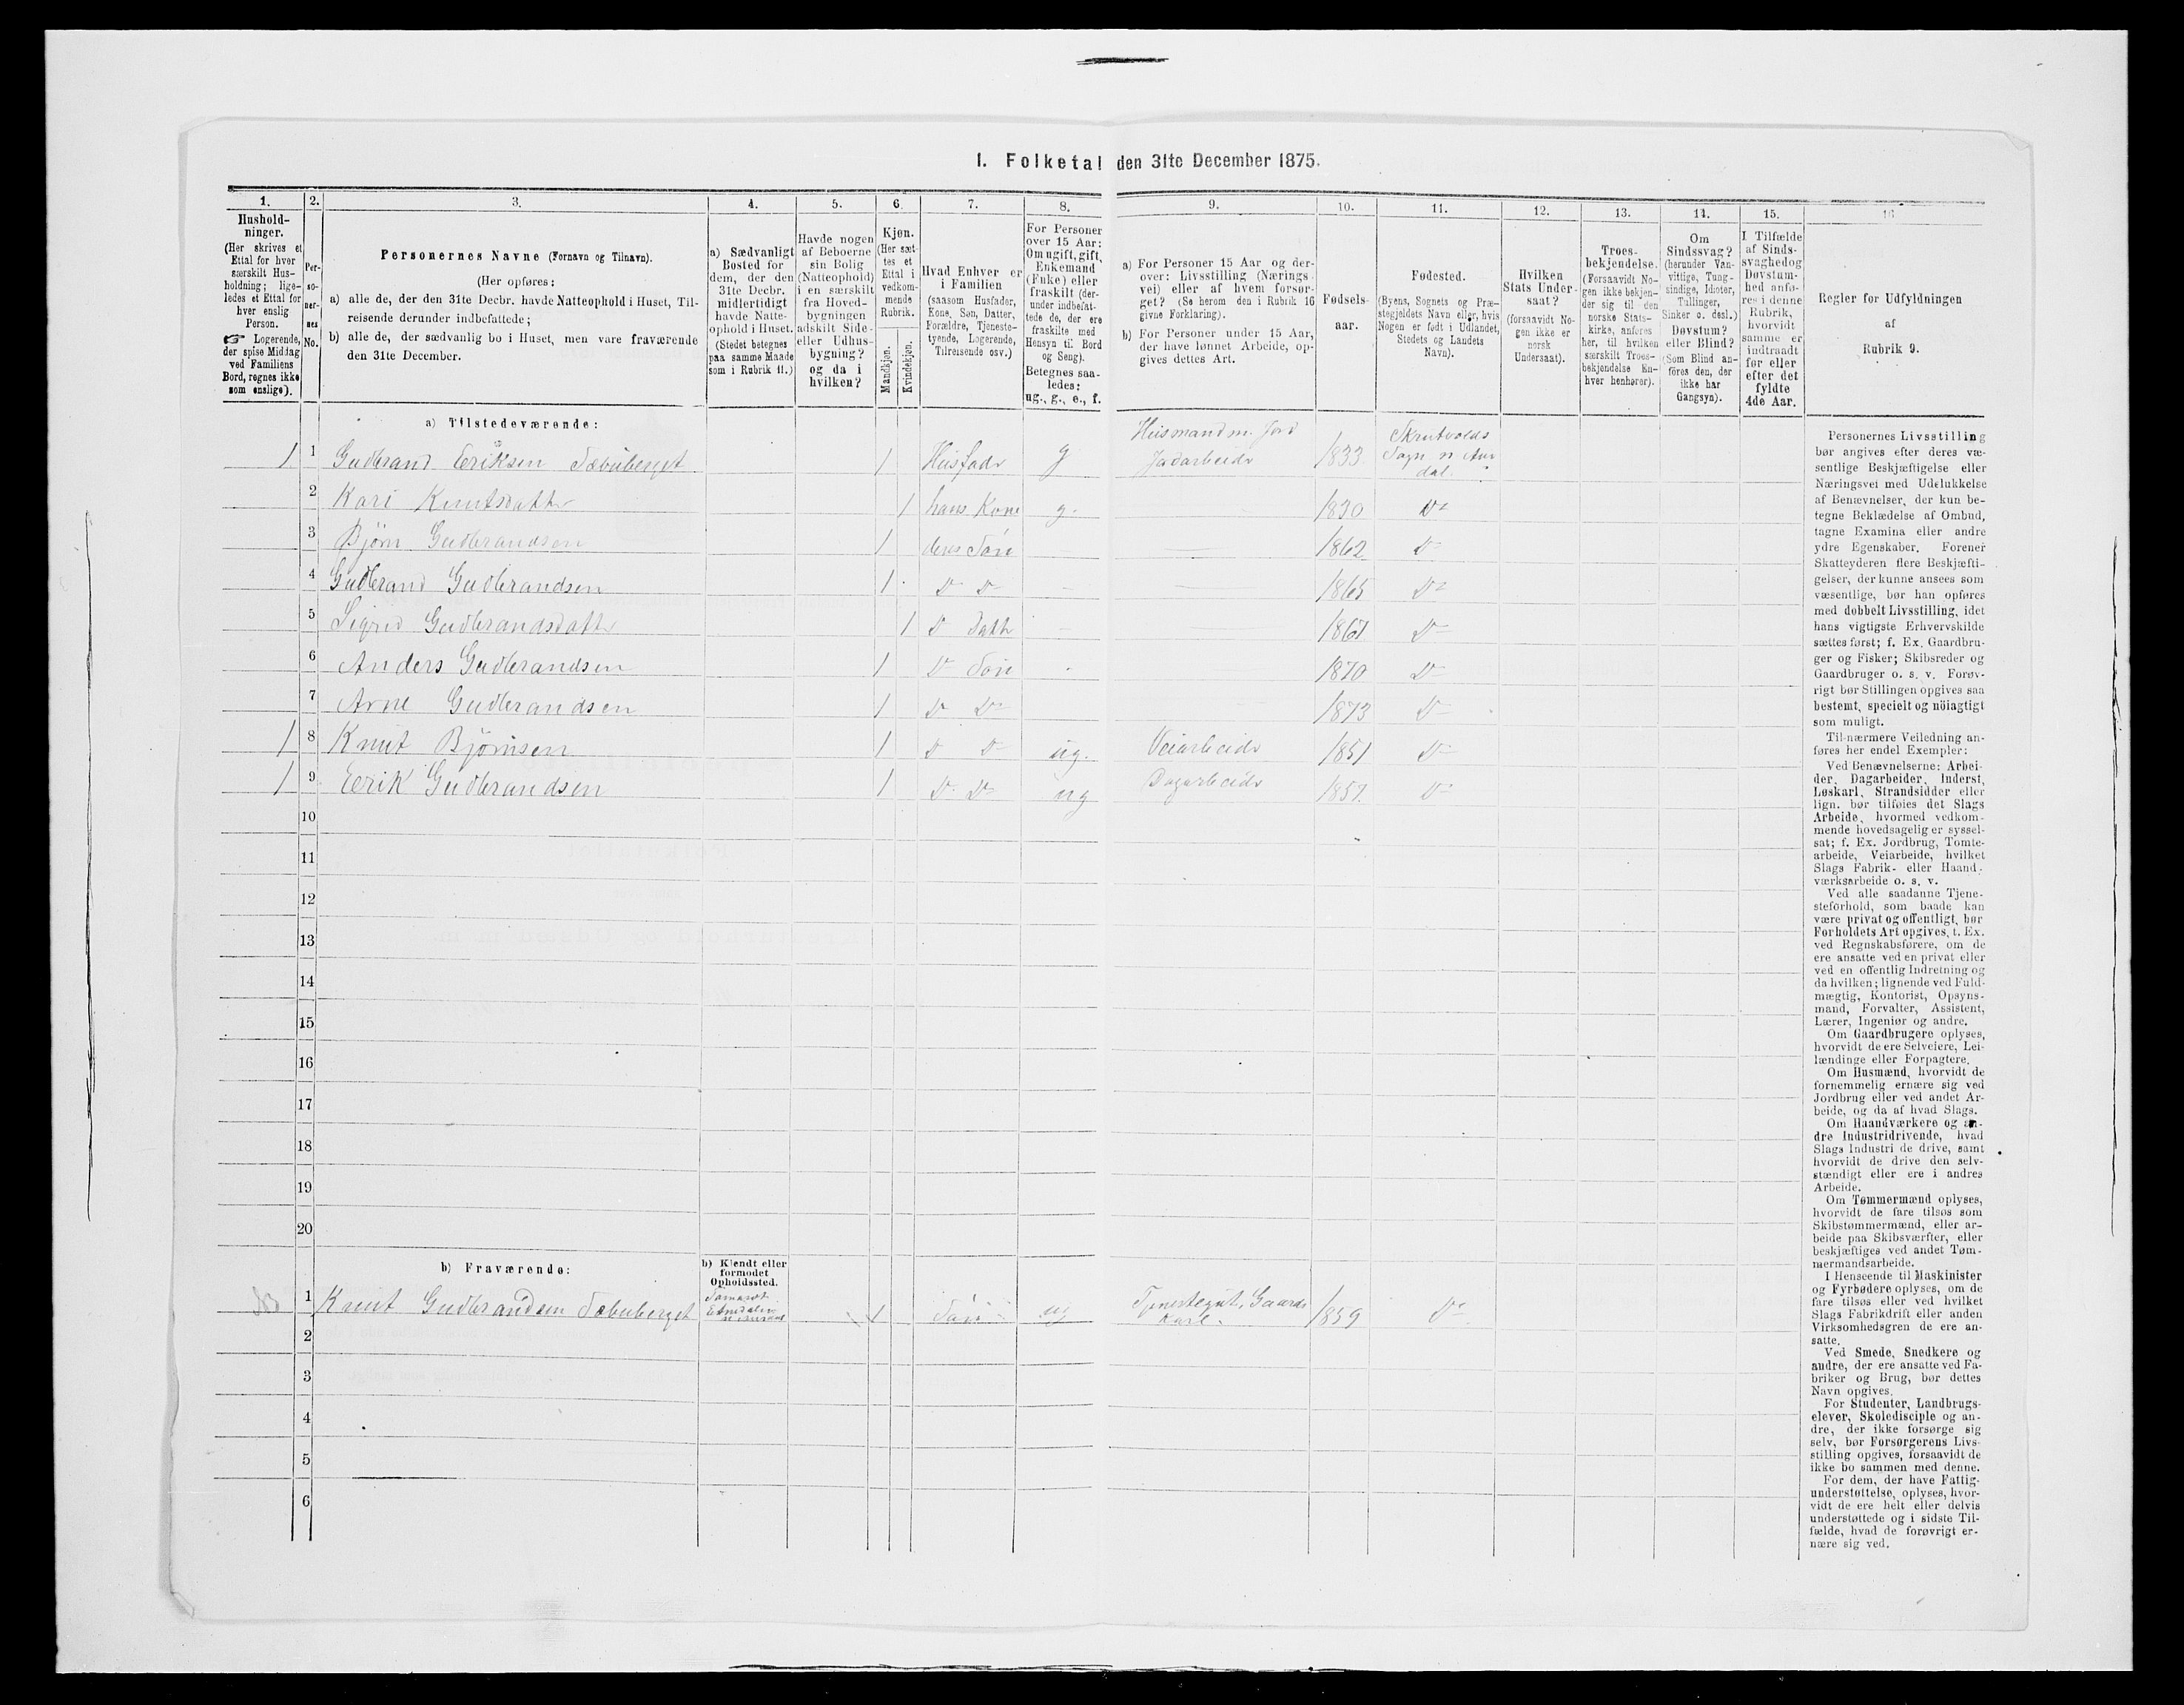 I. Folketal den 31te December 1875.
1.
Hushold-
ninger.
(Her skrives et
Ettal for hver
særskilt Hus-
holdning; lige-
ledes et Ettal for
hver enslig
Person.
☞ Logerende,
der spise Middag
ved Familiens
Bord, regnes ikke
som enslige).
2.
Per-
so-
ner-
nes
No.
3.
Personernes Navne (Fornavn og Tilnavn).
(Her opføres:
a) alle de, der den 31te Decbr. havde Natteophold i Huset, Til-
reisende derunder indbefattede;
b) alle de, der sædvanlig bo i Huset, men vare fraværende
den 31te December.
4.
a) Sædvanligt
Bosted for
dem, der den
31te Decbr.
midlertidigt
havde Natte-
ophold i Huset.
(Stedet betegnes
paa samme Maade
som i Rubrik 11.)
5.
Havde nogen
af Beboerne
sin Bolig
(Natteophold)
i en særskilt
fra Hoved-
bygningen
adskilt Side-
eller Udhus-
bygning?
og da i
hvilken?
6.
Kjøn.
(Her sæt-
tes et
Ettal i
vedkom-
mende
Rubrik.
Mandkjøn.
Kvindekjøn.
7.
Hvad Enhver er
i Familien
(saasom Husfader,
Kone, Søn, Datter,
Forældre, Tjeneste-
tyende, Logerende,
Tilreisende osv.)
8.
For Personer
over 15 Aar:
Om ugift, gift,
Enkemand
(Enke) eller
fraskilt (der-
under indbefat-
tede de, der ere
fraskilte med
Hensyn til Bord
og Seng).
Betegnes saa-
ledes:
ug., g., e., f.
9.
a) For Personer 15 Aar og der-
over: Livsstilling (Nærings-
vei) eller af hvem forsør-
get? (Se herom den i Rubrik 16
givne Forklaring).
b) For Personer under 15 Aar,
der have lønnet Arbeide, op-
gives dettes Art.
10.
Fødsels-
aar.
11.
Fødested.
(Byens, Sognets og Præ-
stegjeldets Navn eller, hvis
Nogen er født i Udlandet,
Stedets og Landets
Navn).
12.
Hvilken
Stats Under-
saat?
(forsaavidt No-
gen ikke er
norsk
Undersaat).
13.
Troes-
bekjendelse.
(Forsaavidt No-
gen ikke bekjen-
der sig til den
norske Stats-
kirke, anføres
her, til hvilken
særskilt Troes-
bekjendelse En-
hver henhører).
14.
Om
Sindssvag?
(herunder Van-
vittige, Tung-
sindige, Idioter,
Tullinger,
Sinker o. desl.)
Døvstum?
eller Blind?
(Som Blind an-
føres den, der
ikke har
Gangsyn).
15.
I Tilfælde
af Sinds-
svaghed og
Døvstum-
hed anfø-
res i denne
Rubrik,
hvorvidt
samme er
indtraadt
før eller
efter det
fyldte
4de Aar.
16
Regler for Udfyldningen
af
Rubrik 9.
a) Tilstedeværende:
1 1 Gudbrand Eriksen Sæbuberget 1 Husfadr g Husmand m. Jord Jordarbeidr 1833 Skrutvolds Sogn n. Aurdal.
2 Kari Knutsdattr 1 hans Kone g. 1830 Do
3 Bjørn Gudbrandsen 1 deres Søn 1862 Do
4 Gudbrand Gudbrandsen 1 Do Do 1865 Do
5 Sigrid Gudbrandsdattr 1 Do Dattr 1867 Do
6 Anders Gudbrandsen 1 Do Søn 1870 Do
7 Arne Gudbrandsen 1 Do Do 1873 Do
1 8 Knut Bjørnsen 1 Do Do ug. Veiarbeidr 1851 Do
1 9 Eerik Gudbrandsen 1 Do Do ug Dagarbeidr 1857. Do
10
11
12
13
14
15
16
17
18
19
20
b) Fraværende:
b) Kjendt eller
formodet
Opholdssted.
1 Knut Gudbrandsen Sæbuberget Etnedalen n. Aurdal 1 Søn ug Tjenestegut, Gaards Karl. 1859 Do
2
3
4
5
6
Personernes Livsstilling
bør angives efter deres væ-
sentlige Beskjæftigelse eller
Næringsvei med Udelukkelse
af Benævnelser, der kun be-
tegne Beklædelse af Ombud,
tagne Examina eller andre
ydre Egenskaber. Forener
Skatteyderen flere Beskjæfti-
gelser, der kunne ansees som
væsentlige, bør han opføres
med dobbelt Livsstilling, idet
hans vigtigste Erhvervskilde
sættes først; f. Ex. Gaardbru-
ger og Fisker; Skibsreder og
Gaardbruger o. s. v. Forøv-
rigt bør Stillingen opgives saa
bestemt, specielt og nöiagtigt
som muligt.
Til nærmere Veiledning an-
føres her endel Exempler:
Ved Benævnelserne: Arbei-
der, Dagarbeider, Inderst,
Løskarl, Strandsidder eller
lign. bør tilføies det Slags
Arbeide, hvormed vedkom-
mende hovedsagelig er syssel-
sat; f. Ex. Jordbrug, Tomte-
arbeide, Veiarbeide, hvilket
Slags Fabrik- eller Haand-
værksarbeide o. s. v.
Ved alle saadanne Tjene-
steforhold, som baade kan
være privat og offentligt, bør
Forholdets Art opgives, t. Ex.
ved Regnskabsførere, om de
ere ansatte ved en privat eller
ved en offentlig Indretning og
da hvilken; lignende ved Fuld-
mægtig, Kontorist, Opsyns-
mand, Forvalter, Assistent,
Lærer, Ingeniør og andre.
Om Gaardbrugere oplyses,
hvorvidt de ere Selveiere, Lei-
lændinge eller Forpagtere.
Om Husmænd, hvorvidt de
fornemmelig ernære sig ved
Jordbrug eller ved andet Ar-
beide, og da af hvad Slags.
Om Haandværkere og an-
dre Industridrivende, hvad
Slags Industri de drive, samt
hvorvidt de drive den selv-
stændigt eller ere i andres
Arbeide.
Om Tømmermænd oplyses,
hvorvidt de fare tilsøs som
Skibstømmermænd, eller ar-
beide paa Skibsværfter, eller
beskjæftiges ved andet Tøm-
mermandsarbeide.
I Henseende til Maskinister
og Fyrbødere oplyses, om de
fare tilsøs eller ved hvilket
Slags Fabrikdrift eller anden
Virksomhedsgren de ere an-
satte.
Ved Smede, Snedkere og
andre, der ere ansatte ved Fa-
briker og Brug, bør dettes
Navn opgives.
For Studenter, Landbrugs-
elever, Skoledisciple og an-
dre, der ikke forsørge sig
selv, bør Forsørgerens Livs-
stilling opgives, forsaavidt de
ikke bo sammen med denne.
For dem, der have Fattig-
understøttelse, oplyses, hvor-
vidt de ere helt eller delvis
understøttede og i sidste Til-
fælde, hvad de forøvrigt er-
nære sig ved.